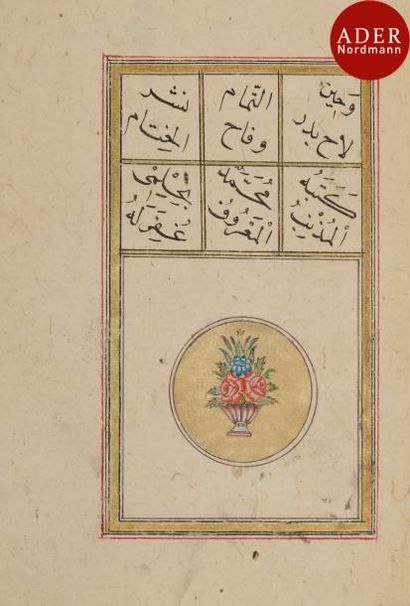 ADER
Nordmann
وحين
لاح بدر
التمام
وفاح
نشر
الختام
كتبه
المذنب
محمد
المعروف
بحلمى
غفر له